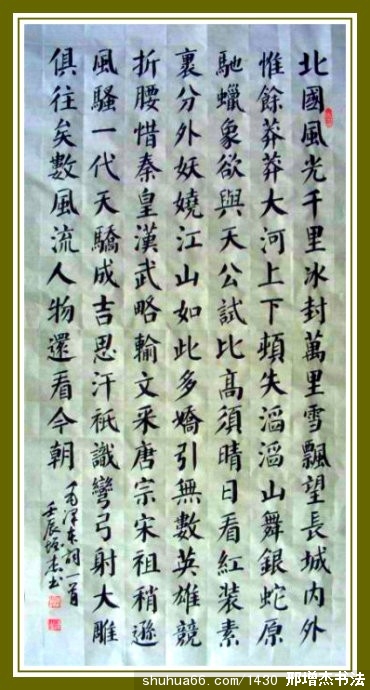 北國風光千里冰封萬里雪飄望長城内外
惟餘莽莽大河上下頓失滔滔山舞銀蛇原
馳蠟象欲與天公試比高須晴日看紅装素
裹分外妖嬈江山如此多嬌引無數英雄競
折腰惜秦皇漢武略輸文采唐宗宋祖稍遜
風騷一代天驕成吉思汗祇識彎弓射大雕
俱往矣數風流人物還看今朝
毛泽东词一首
壬辰增杰书
shuhua66.com/1430 邢增杰书法